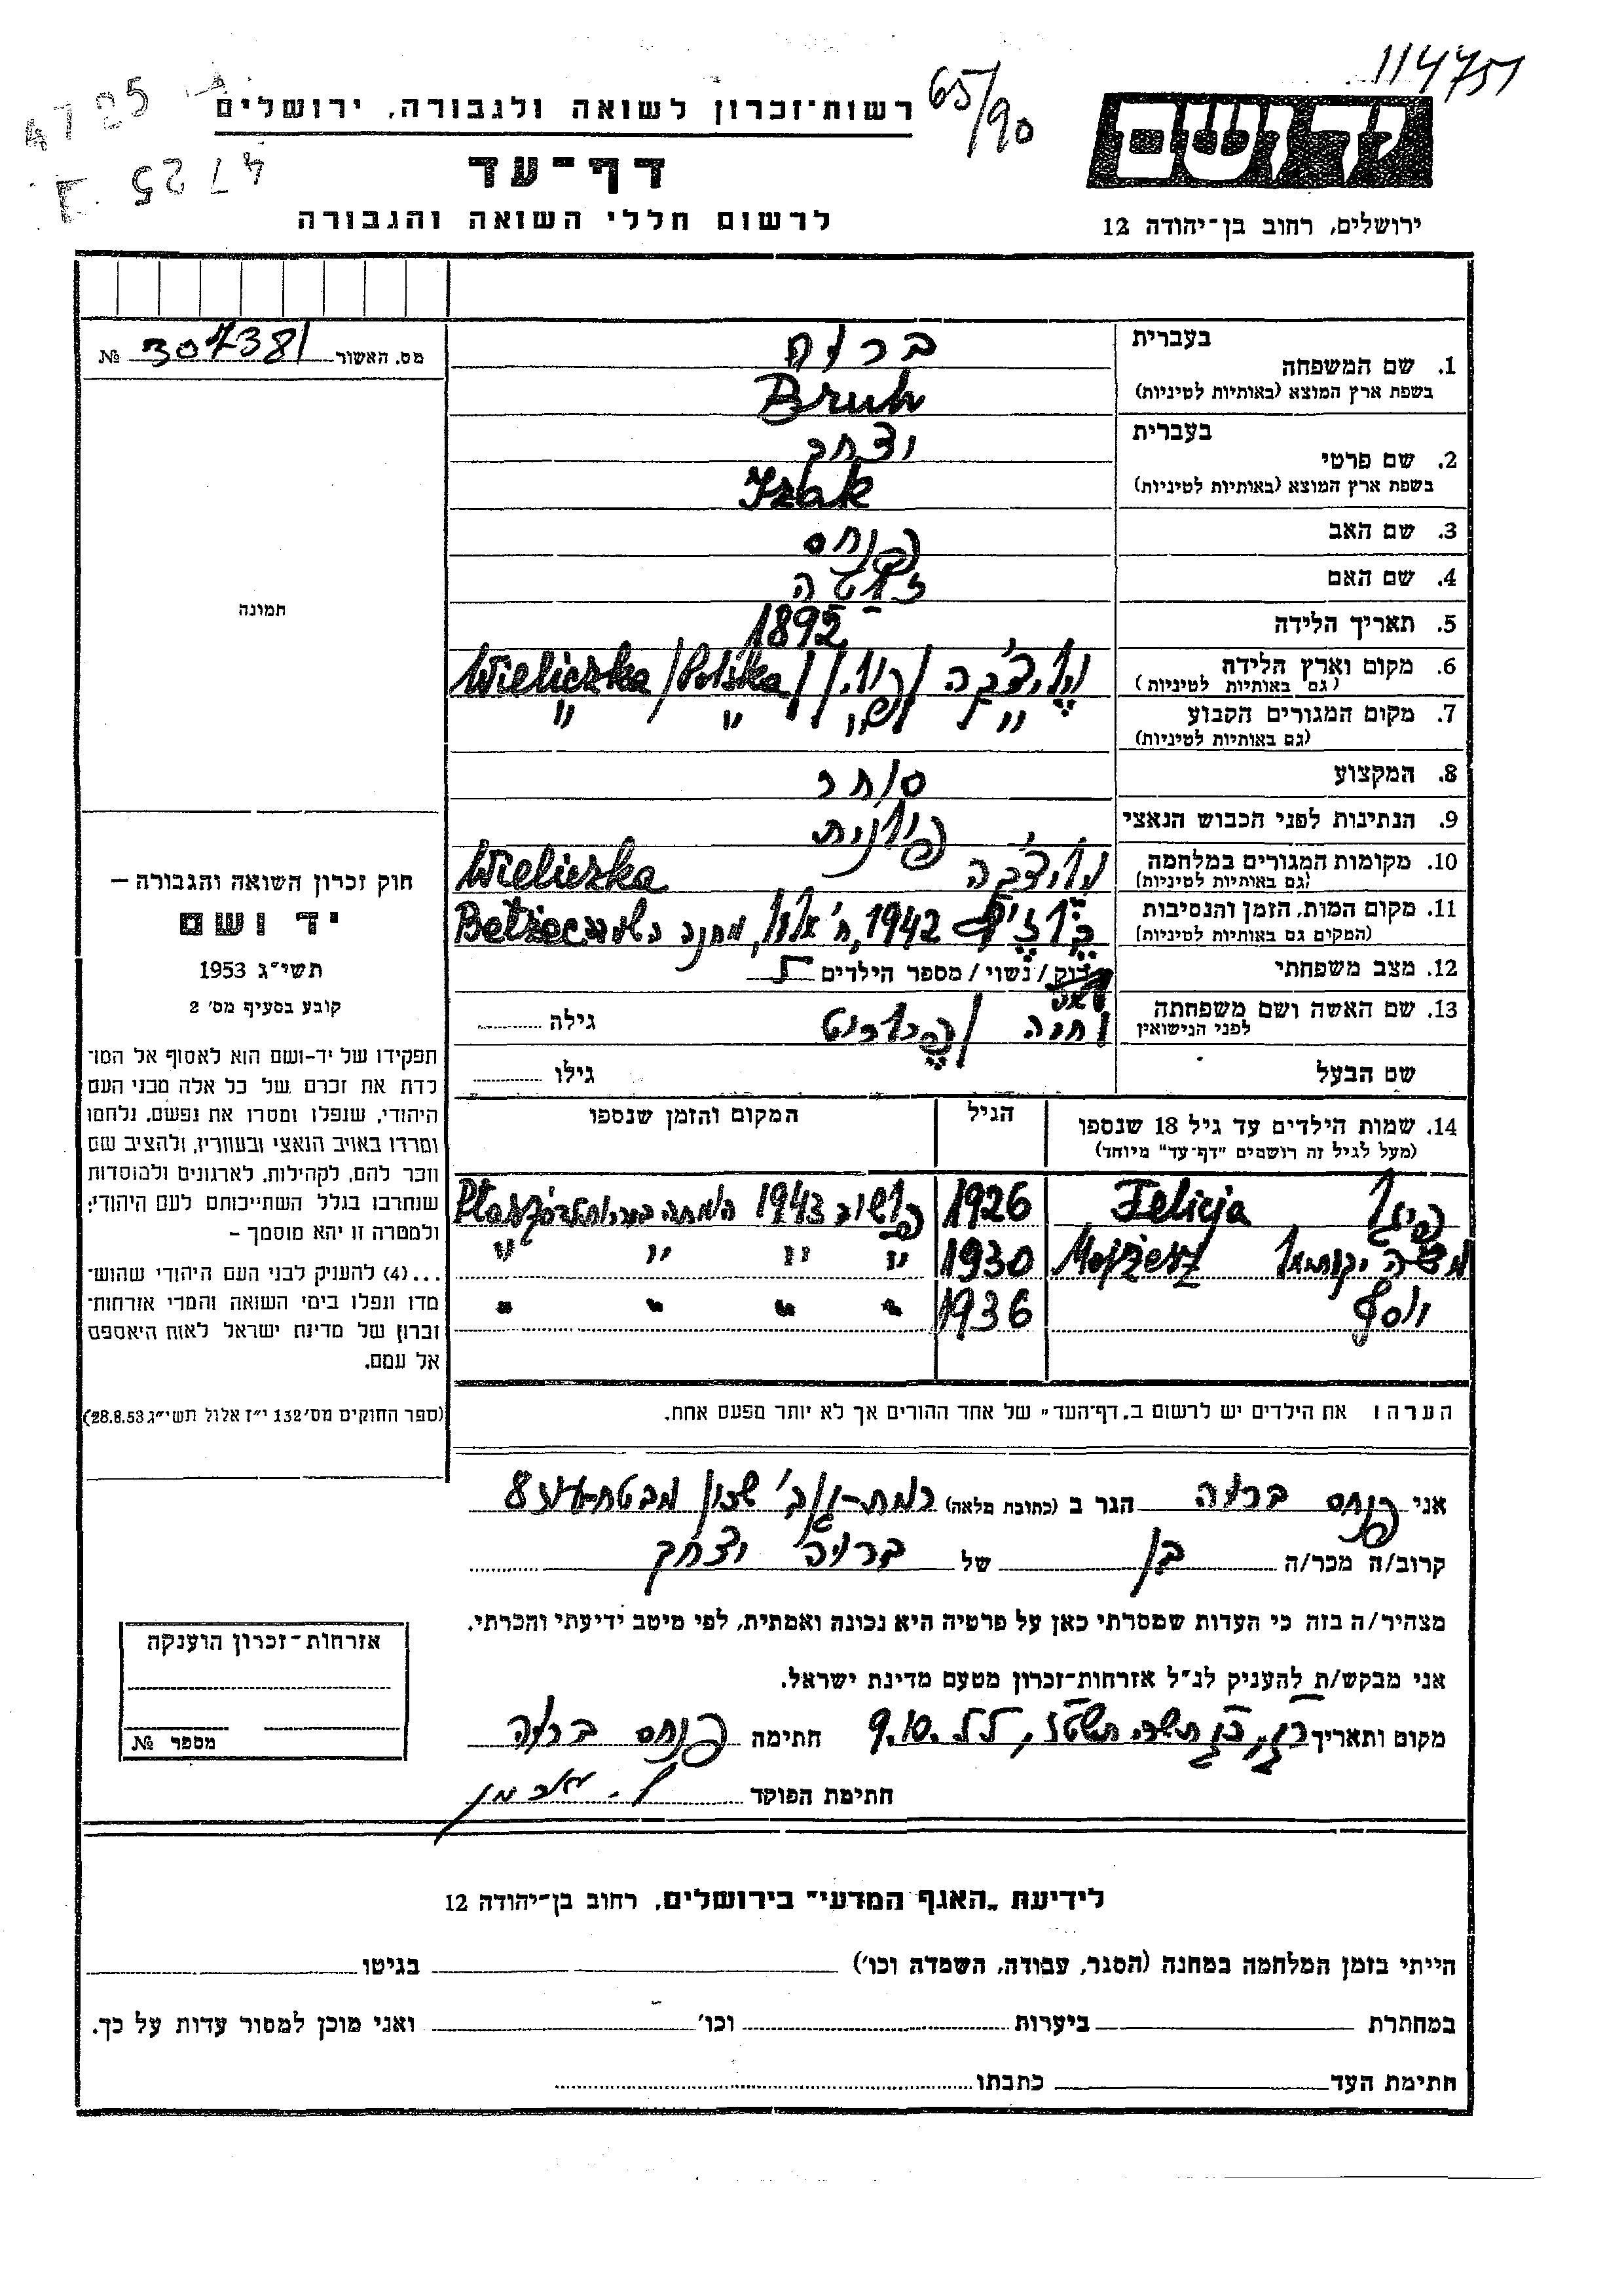 114751
65/90
4725
4725
רשות־זכרון לשואה ולגבורה, ירושלים
דף־עד
לרשום חללי השואה והגבורה
ידושם
ירושלים, רחוב בן־יהודה 12
מס. האשור 307381 №
תמונה
חוק זכרון השואה והגבורה –
יד ושם
תשי״ג 1953
קובע בסעיף מס׳ 2
תפקידו של יד-ושם הוא לאסוף אל המו־
לדת את זכרם של כל אלה מבני העם
היהודי, שנפלו ומסרו את נפשם, נלחמו
ומרדו באויב הנאצי ובעוזריו, ולהציב שם
וזכר להם, לקהילות, לארגונים ולמוסדות
שנחרבו בגלל השתייכותם לעם היהודי;
ולמטרה זו יהא מוסמך –
...(4) להעניק לבני העם היהודי שהוש־
מדו ונפלו בימי השואה והמרי אזרחות־
זכרון של מדינת ישראל לאות היאספם
אל עמם.
(ספר החוקים מס׳ 132 י״ז אלול תשי״ג 28.8.53)
1. שם המשפחה
בעברית ברוה
בשפת ארץ המוצא (באותיות לטיניות) Bruh
2. שם פרטי
בעברית יצחק
בשפת ארץ המוצא (באותיות לטיניות) Izak
3. שם האב פנחס
4. שם האם
5. תאריך הלידה 1892
6. מקום וארץ הלידה ויליצ׳קה / פולין / Wieliczka / Polska
(גם באותיות לטיניות)
7. מקום המגורים הקבוע " " " "
(גם באותיות לטיניות)
8. המקצוע סוחר
9. הנתינות לפני הכבוש הנאצי פולנית
10. מקומות המגורים במלחמה ויליצ׳קה Wieliczka
(גם באותיות לטיניות)
11. מקום המות, הזמן והנסיבות בלז׳ץ 1942, ח׳ אלול, מחנה השמדה Bełżec
(המקום גם באותיות לטיניות)
12. מצב משפחתי רוק / נשוי / מספר הילדים 5
13. שם האשה ושם משפחתה חנה / גילה
לפני הנישואין
שם הבעל גילו
14. שמות הילדים עד גיל 18 שנספו הגיל המקום והזמן שנספו
(מעל לגיל זה רושמים "דף־עד" מיוחד)
Felicja 1926 פלשוב 1943 Płaszów
משה יקותיאל Mojżesz 1930 " " " "
יוסף 1936 " " " "
הערה: את הילדים יש לרשום ב„דף־העד" של אחד ההורים אך לא יותר מפעם אחת.
אני פנחס ברוה הגר ב (כתובת מלאה) רמת-גן, שכון מבטח-עוז 8
קרוב/ה מכר/ה בן של ברוה יצחק
מצהיר/ה בזה כי העדות שמסרתי כאן על פרטיה היא נכונה ואמתית, לפי מיטב ידיעתי והכרתי.
אני מבקש/ת להעניק לנ״ל אזרחות־זכרון מטעם מדינת ישראל.
מקום ותאריך חתימה פנחס ברוה
חתימת הפוקד
אזרחות־זכרון הוענקה
מספר №
לידיעת „האגף המדעי" בירושלים, רחוב בן־יהודה 12
הייתי בזמן המלחמה במחנה (הסגר, עבודה, השמדה וכו׳) בגיטו
במחתרת ביערות וכו׳ ואני מוכן למסור עדות על כך.
חתימת העד כתבתו